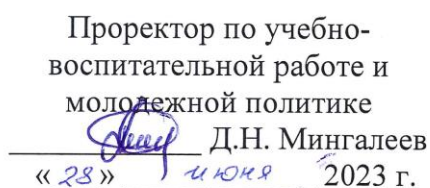 Проректор по учебно-
воспитательной работе и
молодежной политике
Д.Н. Мингалеев
« 28 » июня 2023 г.